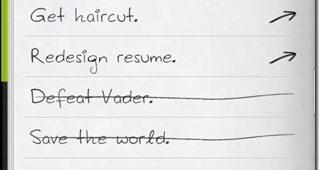 Get haircut.
Redesign resume.
Defeat Vader.
Save the world.